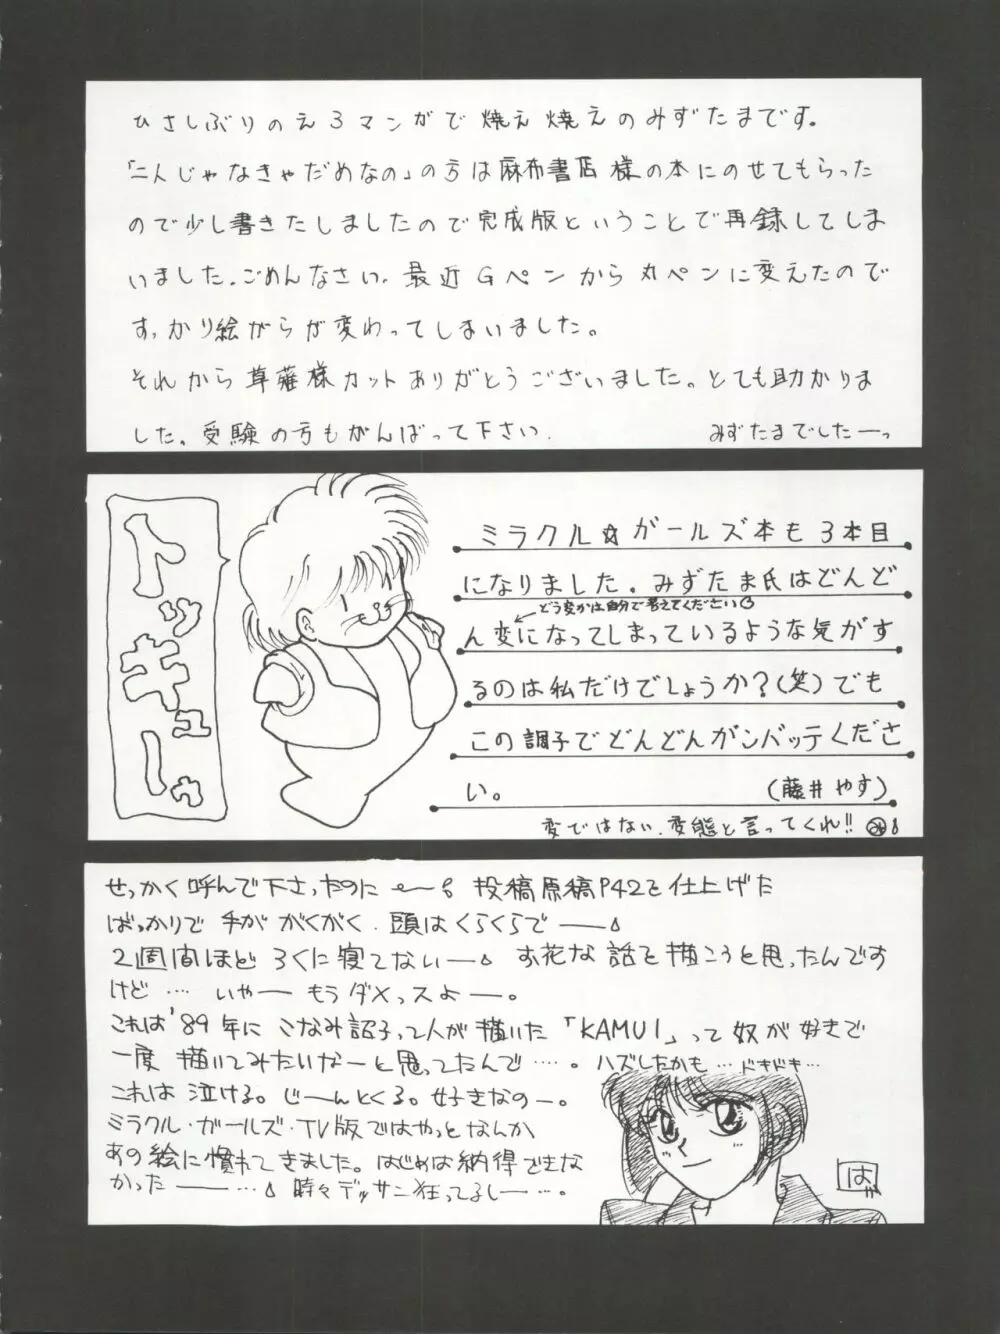 ひさしぶりのえろマンガで焼え焼えのみずたまです。
「二人じゃなきゃだめなの」の方は麻布書店様の本にのせてもらった
ので少し書きたしましたので完成版ということで再録してしま
いました。ごめんなさい。最近Gペンから丸ペンに変えたので
すっかり絵がらが変わってしまいました。
それから草薙様カットありがとうございました。とても助かりま
した。受験の方もがんばって下さい.
みずたまでしたーっ
トッキューゥ
ミラクル☆ガールズ本も3本目
になりました。みずたま氏はどんど
どう変かは自分で考えてください
ん変になってしまっているような気がす
るのは私だけでしょうか?(笑)でも
この調子でどんどんガンバッテくださ
い。
(藤井やす)
変ではない.変態と言ってくれ!!
せっかく呼んで下さったのに 投稿原稿P42を仕上げた
ばっかりで 手が がくがく.頭はくらくらで――
2週間ほど ろくに寝てないー お花な話を描こうと思ったんです
けど … いやー もうダメっスよー。
これは'89年に こなみ詔子って人が描いた「KAMUI」って奴が好きで
一度 描いてみたいなーと思ってたんで…。ハズしたかも…ドキドキ…
これは 泣ける。じーんとくる。好きなのー。
ミラクル・ガールズ・TV版ではやっとなんか
あの絵に慣れてきました。はじめは納得できな
かった――… 時々デッサン狂ってるしー…。
は